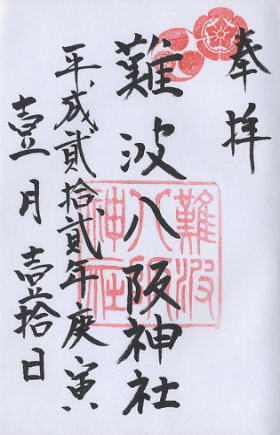 奉拝
難波八阪神社
平成貳拾貳年庚寅
壹月壹拾日
難波
八阪
神社